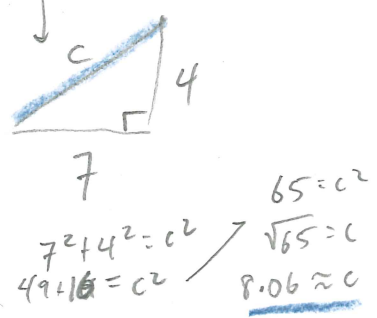 c
4
7
7²+4²=c²
49+16=c²
65=c²
√65=c
8.06≈c